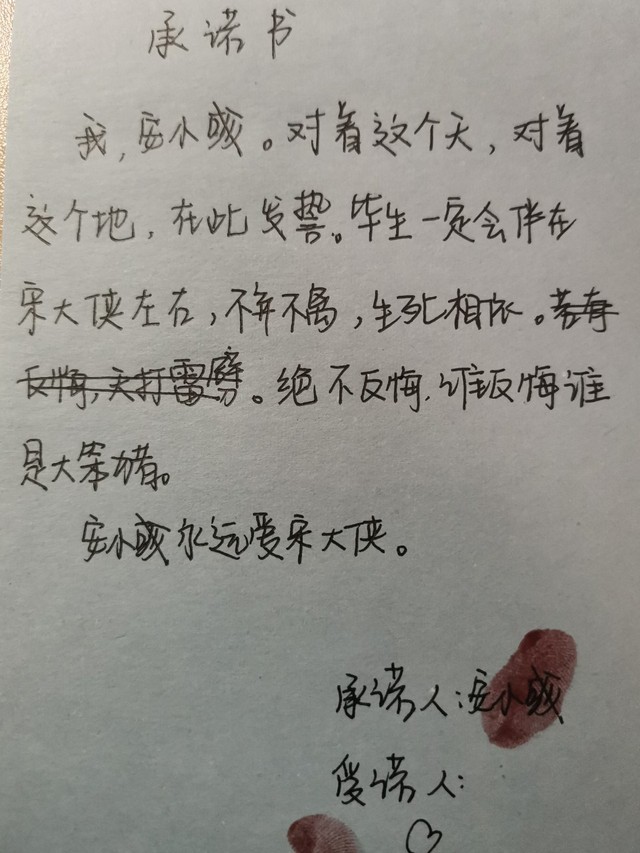 承诺书
我，安小彧。对着这个天，对着
这个地，在此发誓。毕生一定会伴在
宋大侠左右，不弃不离，生死相依。若有
反悔，天打雷劈。绝不反悔，谁反悔谁
是大笨猪。
安小彧永远爱宋大侠。
承诺人：安小彧
受诺人：